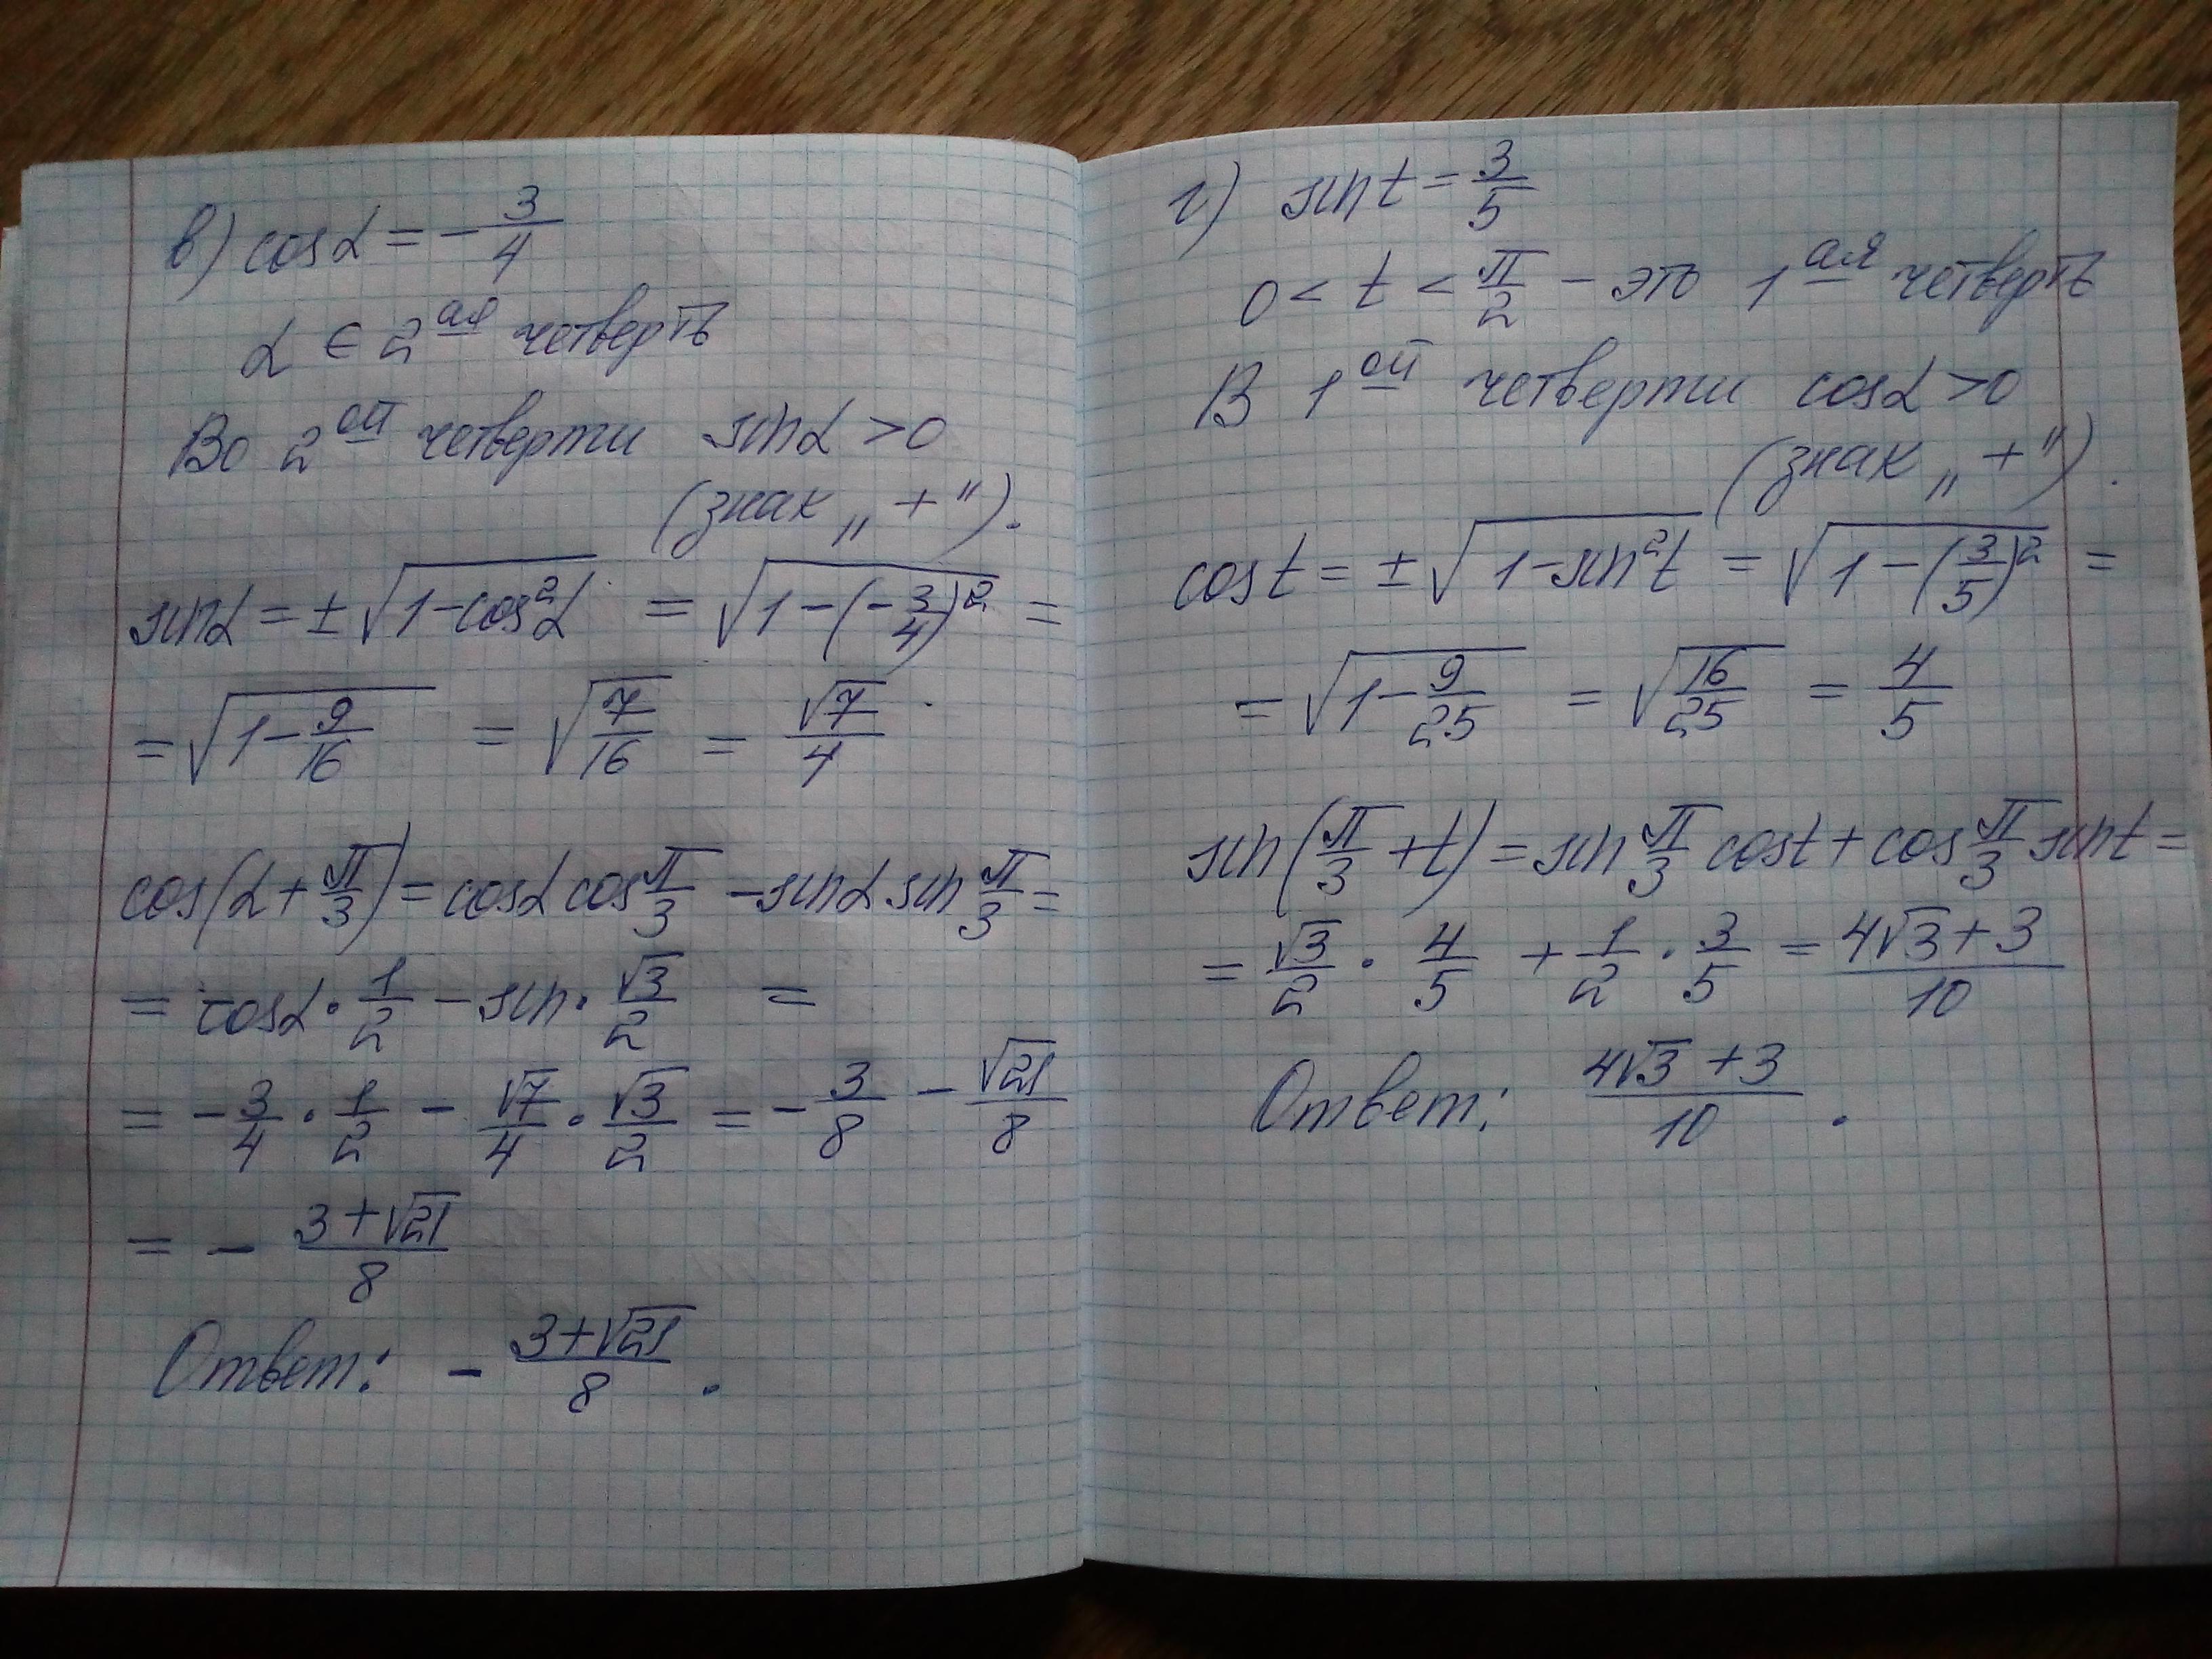 в) cosα = -3/4
α ∈ 2ая четверть
Во 2ой четверти sinα > 0
(знак „+").
sinα = ±√(1-cos²α) = √(1-(-3/4)²) =
= √(1-9/16) = √(7/16) = √7/4
cos(α+π/3) = cosα cos π/3 - sinα sin π/3 =
= cosα · 1/2 - sin · √3/2 =
= -3/4 · 1/2 - √7/4 · √3/2 = -3/8 - √21/8
= - (3+√21)/8
Ответ: - (3+√21)/8 .
г) sin t = 3/5
0 < t < π/2 - это 1ая четверть
В 1ой четверти cosα > 0
(знак „+").
cos t = ±√(1-sin²t) = √(1-(3/5)²) =
= √(1-9/25) = √(16/25) = 4/5
sin(π/3+t) = sin π/3 cos t + cos π/3 sin t =
= √3/2 · 4/5 + 1/2 · 3/5 = (4√3+3)/10
Ответ: (4√3+3)/10 .